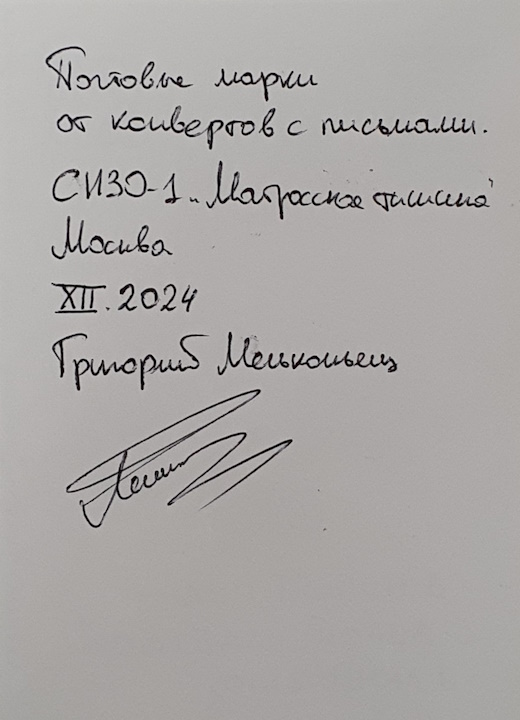 Почтовые марки
от конвертов с письмами.
СИЗО-1 „Матросская тишина"
Москва
XII. 2024
Григорий Мельконьянц